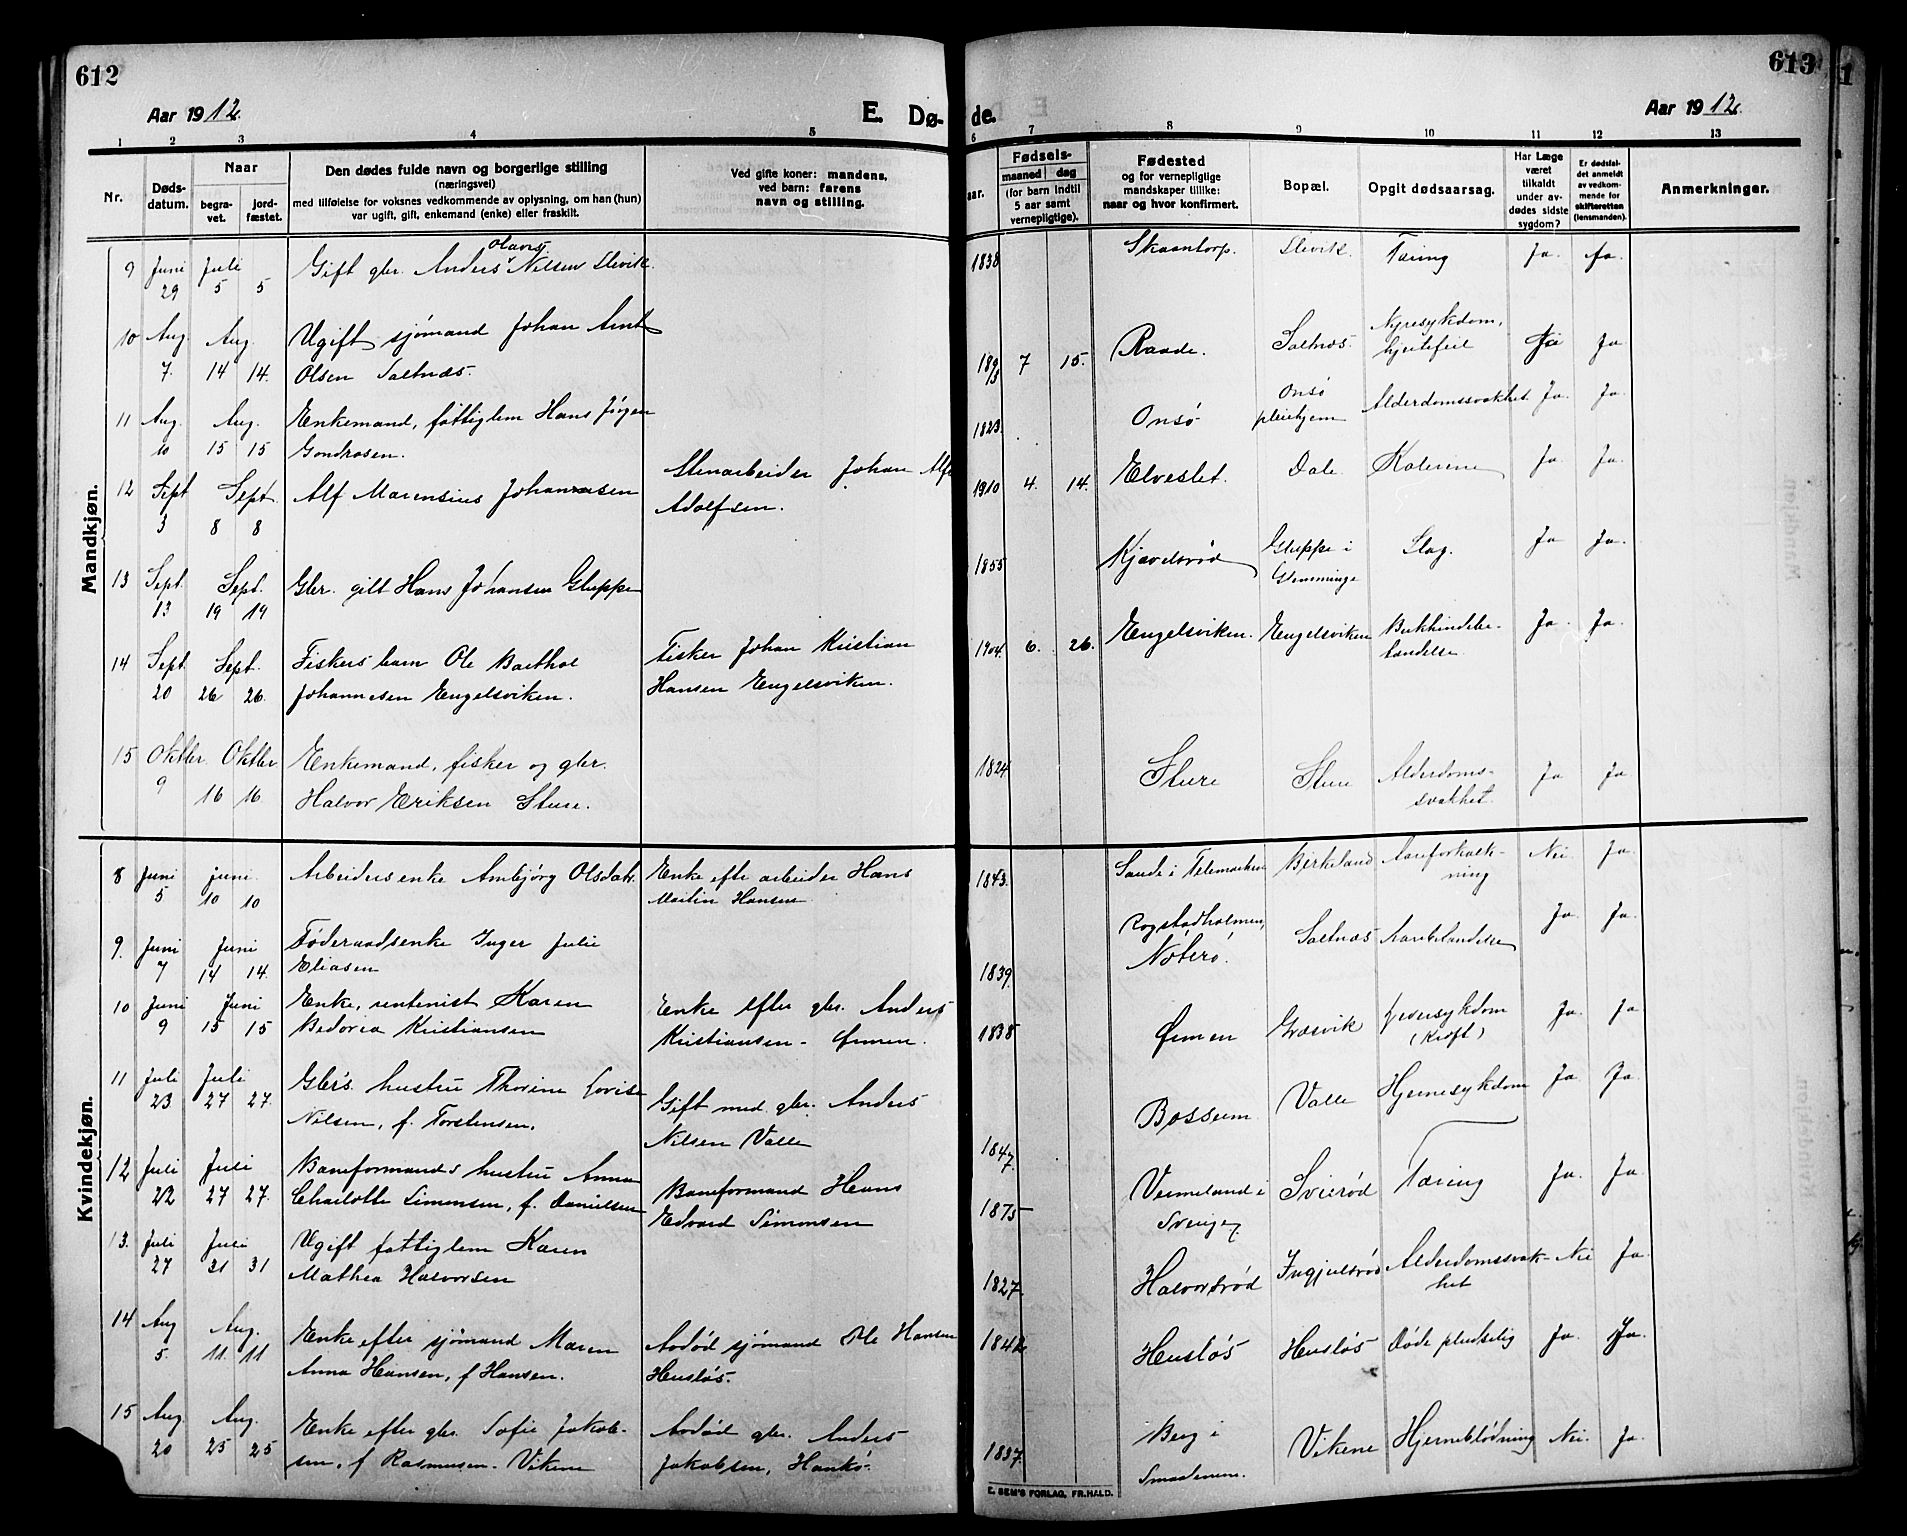 612
613
Aar 1912.
E. Dø-
de.
Aar 1912.
1 2 3 4 5 6 7 8 9 10 11 12 13
Nr.
Døds-
datum.
Naar
begra-
vet.
jord-
fæstet.
Den dødes fulde navn og borgerlige stilling
(næringsvei)
med tilføielse for voksnes vedkommende av oplysning, om han (hun)
var ugift, gift, enkemand (enke) eller fraskilt.
Ved gifte koner: mandens,
ved barn: farens
navn og stilling.
aar.
Fødsels-
maaned dag
(for barn indtil
5 aar samt
vernepligtige).
Fødested
og for vernepligtige
mandskaper tillike:
naar og hvor konfirmert.
Bopæl.
Opgit dødsaarsag.
Har Læge
været
tilkaldt
under av-
dødes sidste
sygdom?
Er dødsfal-
det anmeldt
av vedkom-
mende for
skifteretten
(lensmanden).
Anmerkninger.
Mandkjøn.
9 Juni 29 Juli 5 5 Gift gbr. Anders Olaus Nilsen Slevik. 1838 Skaantorp. Slevik. Tæring Ja. Ja.
10 Aug. 7. Aug. 14 14. Ugift sjømand Johan Arnt
Olsen Saltnæs. 1895 7 15. Raade. Saltnæs. Nyresykdom,
hjertefeil Ja
11 Aug. 10 Aug. 15 15 Enkemand, fattiglem Hans Jörgen
1823. Onsö Onsö
pleiehjem Alderdomssvakhet Ja. Ja.
12 Sept 3 Sept. 8 8 Alf Marensius Johannesen Stenarbeider Johan Alfr
Adolfsen. 1910 4. 14. Elveslet. Dale. Kolerine Ja. Ja.
13 Sept. 13 Sept. 19 19 Gbr. gift Hans Johansen Gluppe 1855 Kjævelsrød Gluppe i
Glemminge Slag. Ja Ja.
14 Sept. 20 Sept. 26 26. Fiskers barn Ole Barthol
Johannesen Engelsviken. Fisker Johan Kristian
Hansen Engelsviken. 1904. 6. 26. Engelsviken. Engelsviken Bukhindebe-
tændelse. Ja. Ja.
15 Oktbr. 9 Oktbr. 16 16 Enkemand, fisker og gbr.
Halvor Eriksen Sture. 1824 Sture Sture Alderdoms-
svakhet. Ja Ja
Kvindekjøn.
8 Juni 5 Juni 10 10 Arbeidersenke Ambjørg Olsdatr. Enke efter arbeider Hans
Martin Hansen 1843. Saude i Telemarken Birkeland Aareforkalk-
ning Nei Ja.
9. Juni 7 Juni 14 14. Føderaadsenke Inger Julie
Eliasen 1839. Rogstadholmen,
Nøterø. Saltnæs Aarebetændelse Ja. Ja.
10 Juni 9 Juni 15 15 Enke, rentenist Karen
Bedorea Kristiansen Enke efter gbr. Anders
Kristiansen - Ørmen. 1838 Ørmen Græsvik Leversykdom
(Kræft) Ja. Ja
11 Juli 23 Juli 27 27. Gbr's. hustru Thorine Lovise
Nilsen, f. Torstensen. Gift med gbr. Anders
Nilsen Valle 1847. Bossum Valle Hjernesykdom Ja. Ja.
12 Juli 22 Juli 27 27. Baneformands hustru Anna
Charlotte Simonsen, f. Danielsen Baneformand Hans
Edvard Simonsen 1875 Vermeland i
Sverige Svierød Tæring Ja. Ja.
13. Juli 27 Juli 31 31 Ugift fattiglem Karen
Mathea Halvorsen 1827. Halvorsrød Ingjelsrød Alderdomssvak-
het Nei Ja.
14 Aug 5. Aug. 11. 11 Enke efter sjømand Maren
Anna Hansen, f Hansen. Avdød sjømand Ole Hansen
Husløs. 1842 Husløs Husløs Døde pludselig Ja. Ja.
15 Aug. 20 Aug. 25 25 Enke efter gbr. Sofie Jakob-
sen, f Rasmusen. Vikene Avdød gbr. Anders
Jakobsen, Hankø. 1837. Berg i
Smaalenene. Vikene Hjerneblødning Nei. Ja.
E. SEM'S FORLAG, FR.HALD.